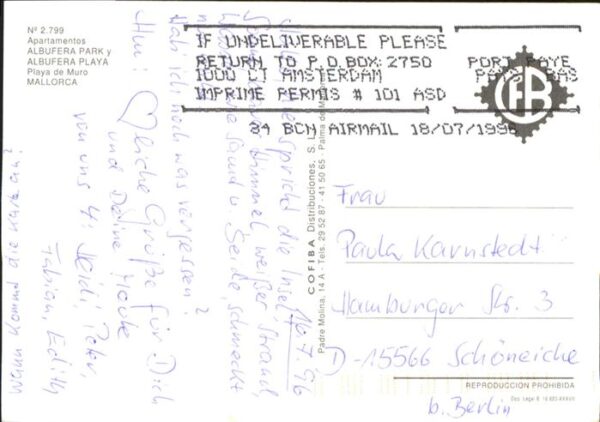 Nº 2.799
Apartamentos
ALBUFERA PARK y
ALBUFERA PLAYA
Playa de Muro
MALLORCA
IF UNDELIVERABLE PLEASE
RETURN TO P.O.BOX: 2750
1000 CT AMSTERDAM
IMPRIME PERMIS # 101 ASD
PORT PAYE
PAYS BAS
CFB
34 BCN AIRMAIL 18/07/1996
16.7.96
spricht die Insel:
Himmel, weißer Strand,
Sand u. Seide, schmeckt
Hab ich noch was vergessen?
Hm: ♡liche Grüße für Dich
und Deine
von uns 4: Heidi, Peter,
Fabian, Edith
Wann kommt die Karte an?
COFIBA Distribuciones, S. L.
Padre Molina, 14 A - Tels. 29 52 87 - 41 50 65 - Palma de
Frau
Paula Karnstedt
Hamburger Str. 3
D-15566 Schöneiche
b. Berlin
REPRODUCCION PROHIBIDA